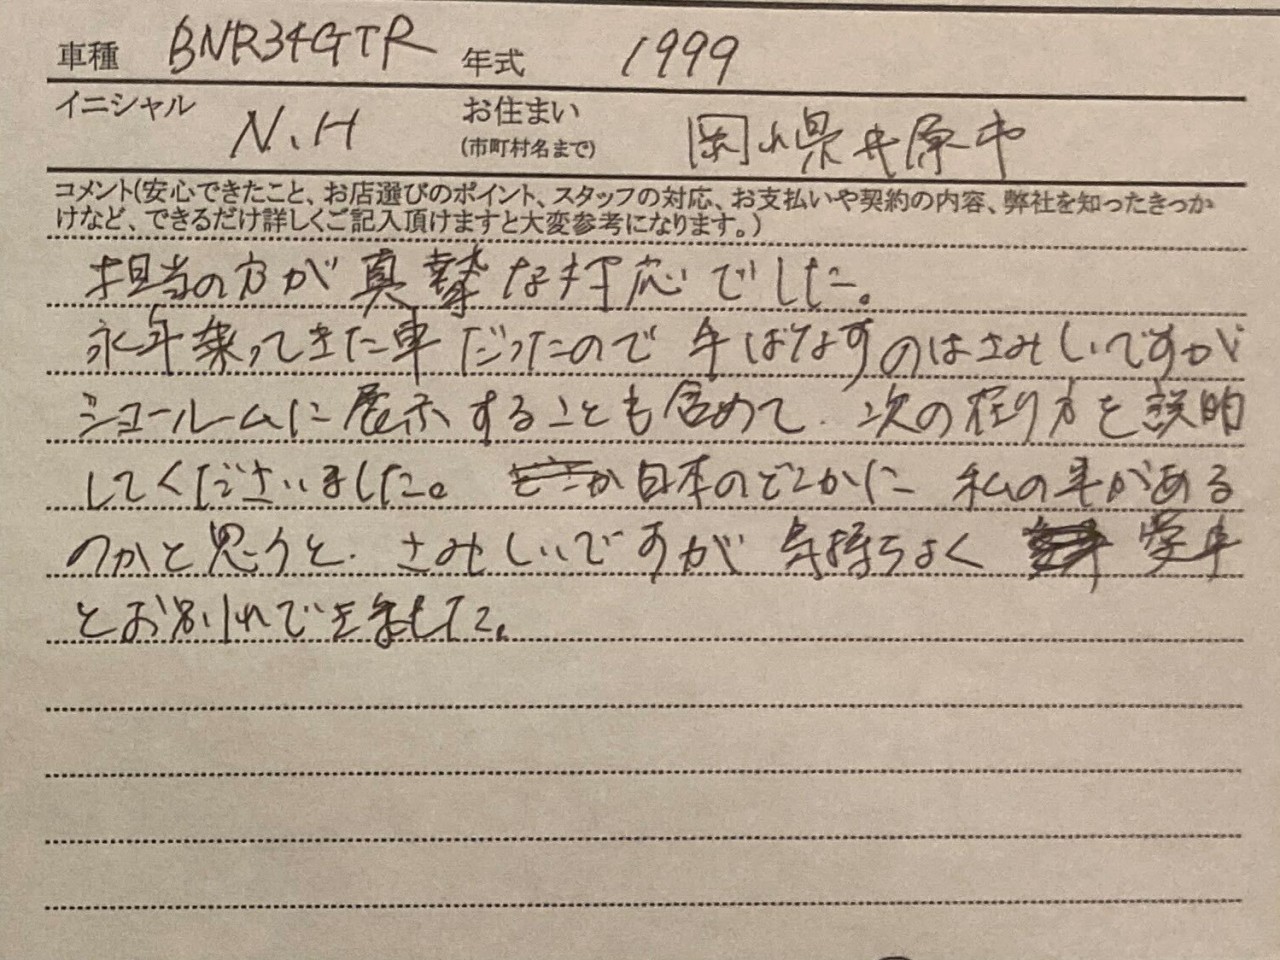 車種 BNR34GTR 年式 1999
イニシャル N.H お住まい(市町村名まで) 岡山県井原市
コメント(安心できたこと、お店選びのポイント、スタッフの対応、お支払いや契約の内容、弊社を知ったきっか
けなど、できるだけ詳しくご記入頂けますと大変参考になります。)
担当の方が真摯な対応でした。
永年乗ってきた車だったので手ばなすのはさみしいですが
ショールームに展示することも含めて、次の在り方を説明
してくださいました。日本のどこかに私の車がある
のかと思うと、さみしいですが気持ちよく愛車
とお別れできました。